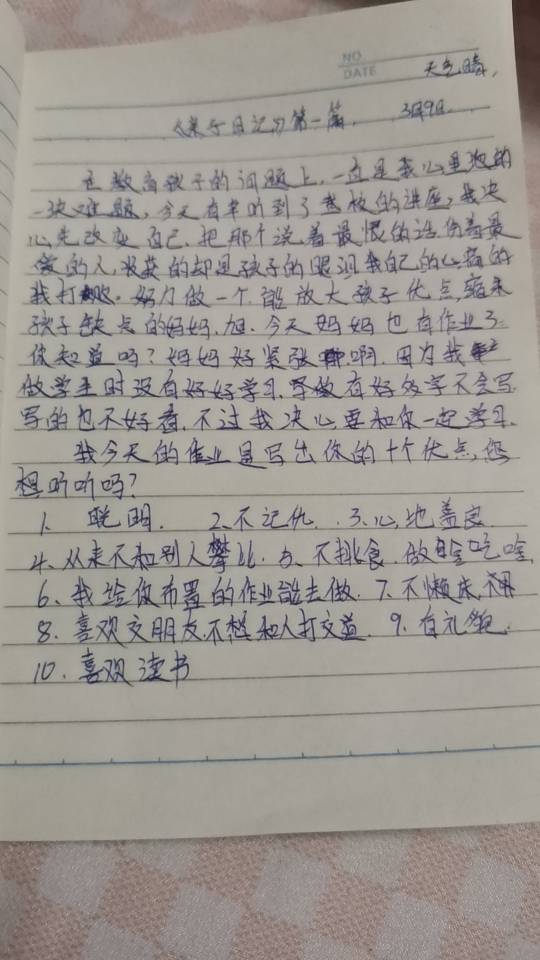 NO
DATE
天气晴,
《亲子日记》第一篇. 3月9日
在教育孩子的问题上,一直是我心里的
一块难题,今天有幸听到了 的讲座,我决
心先改变自己,把那个说着最恨的话伤着最
的人,收获的却是孩子的眼泪我自己的心痛的
我打败.努力做一个能放大孩子优点,缩
孩子缺点的妈妈,旭.今天妈妈也有作业了
你知道吗?妈妈好紧张啊.因为我
做学生时没有好好学习,有好多字不会写
写的也不好看,不过我决心要和你一起学习.
我今天的作业是写出你的十个优点,你
想听听吗?
1、聪明. 2、不记仇 3、心地善良
4、从来不和别人攀比. 5、不挑食.做啥吃啥
6、我给你布置的作业能去做. 7、不懒床,
8、喜欢交朋友,不 和人打交道. 9、有礼貌.
10、喜欢读书